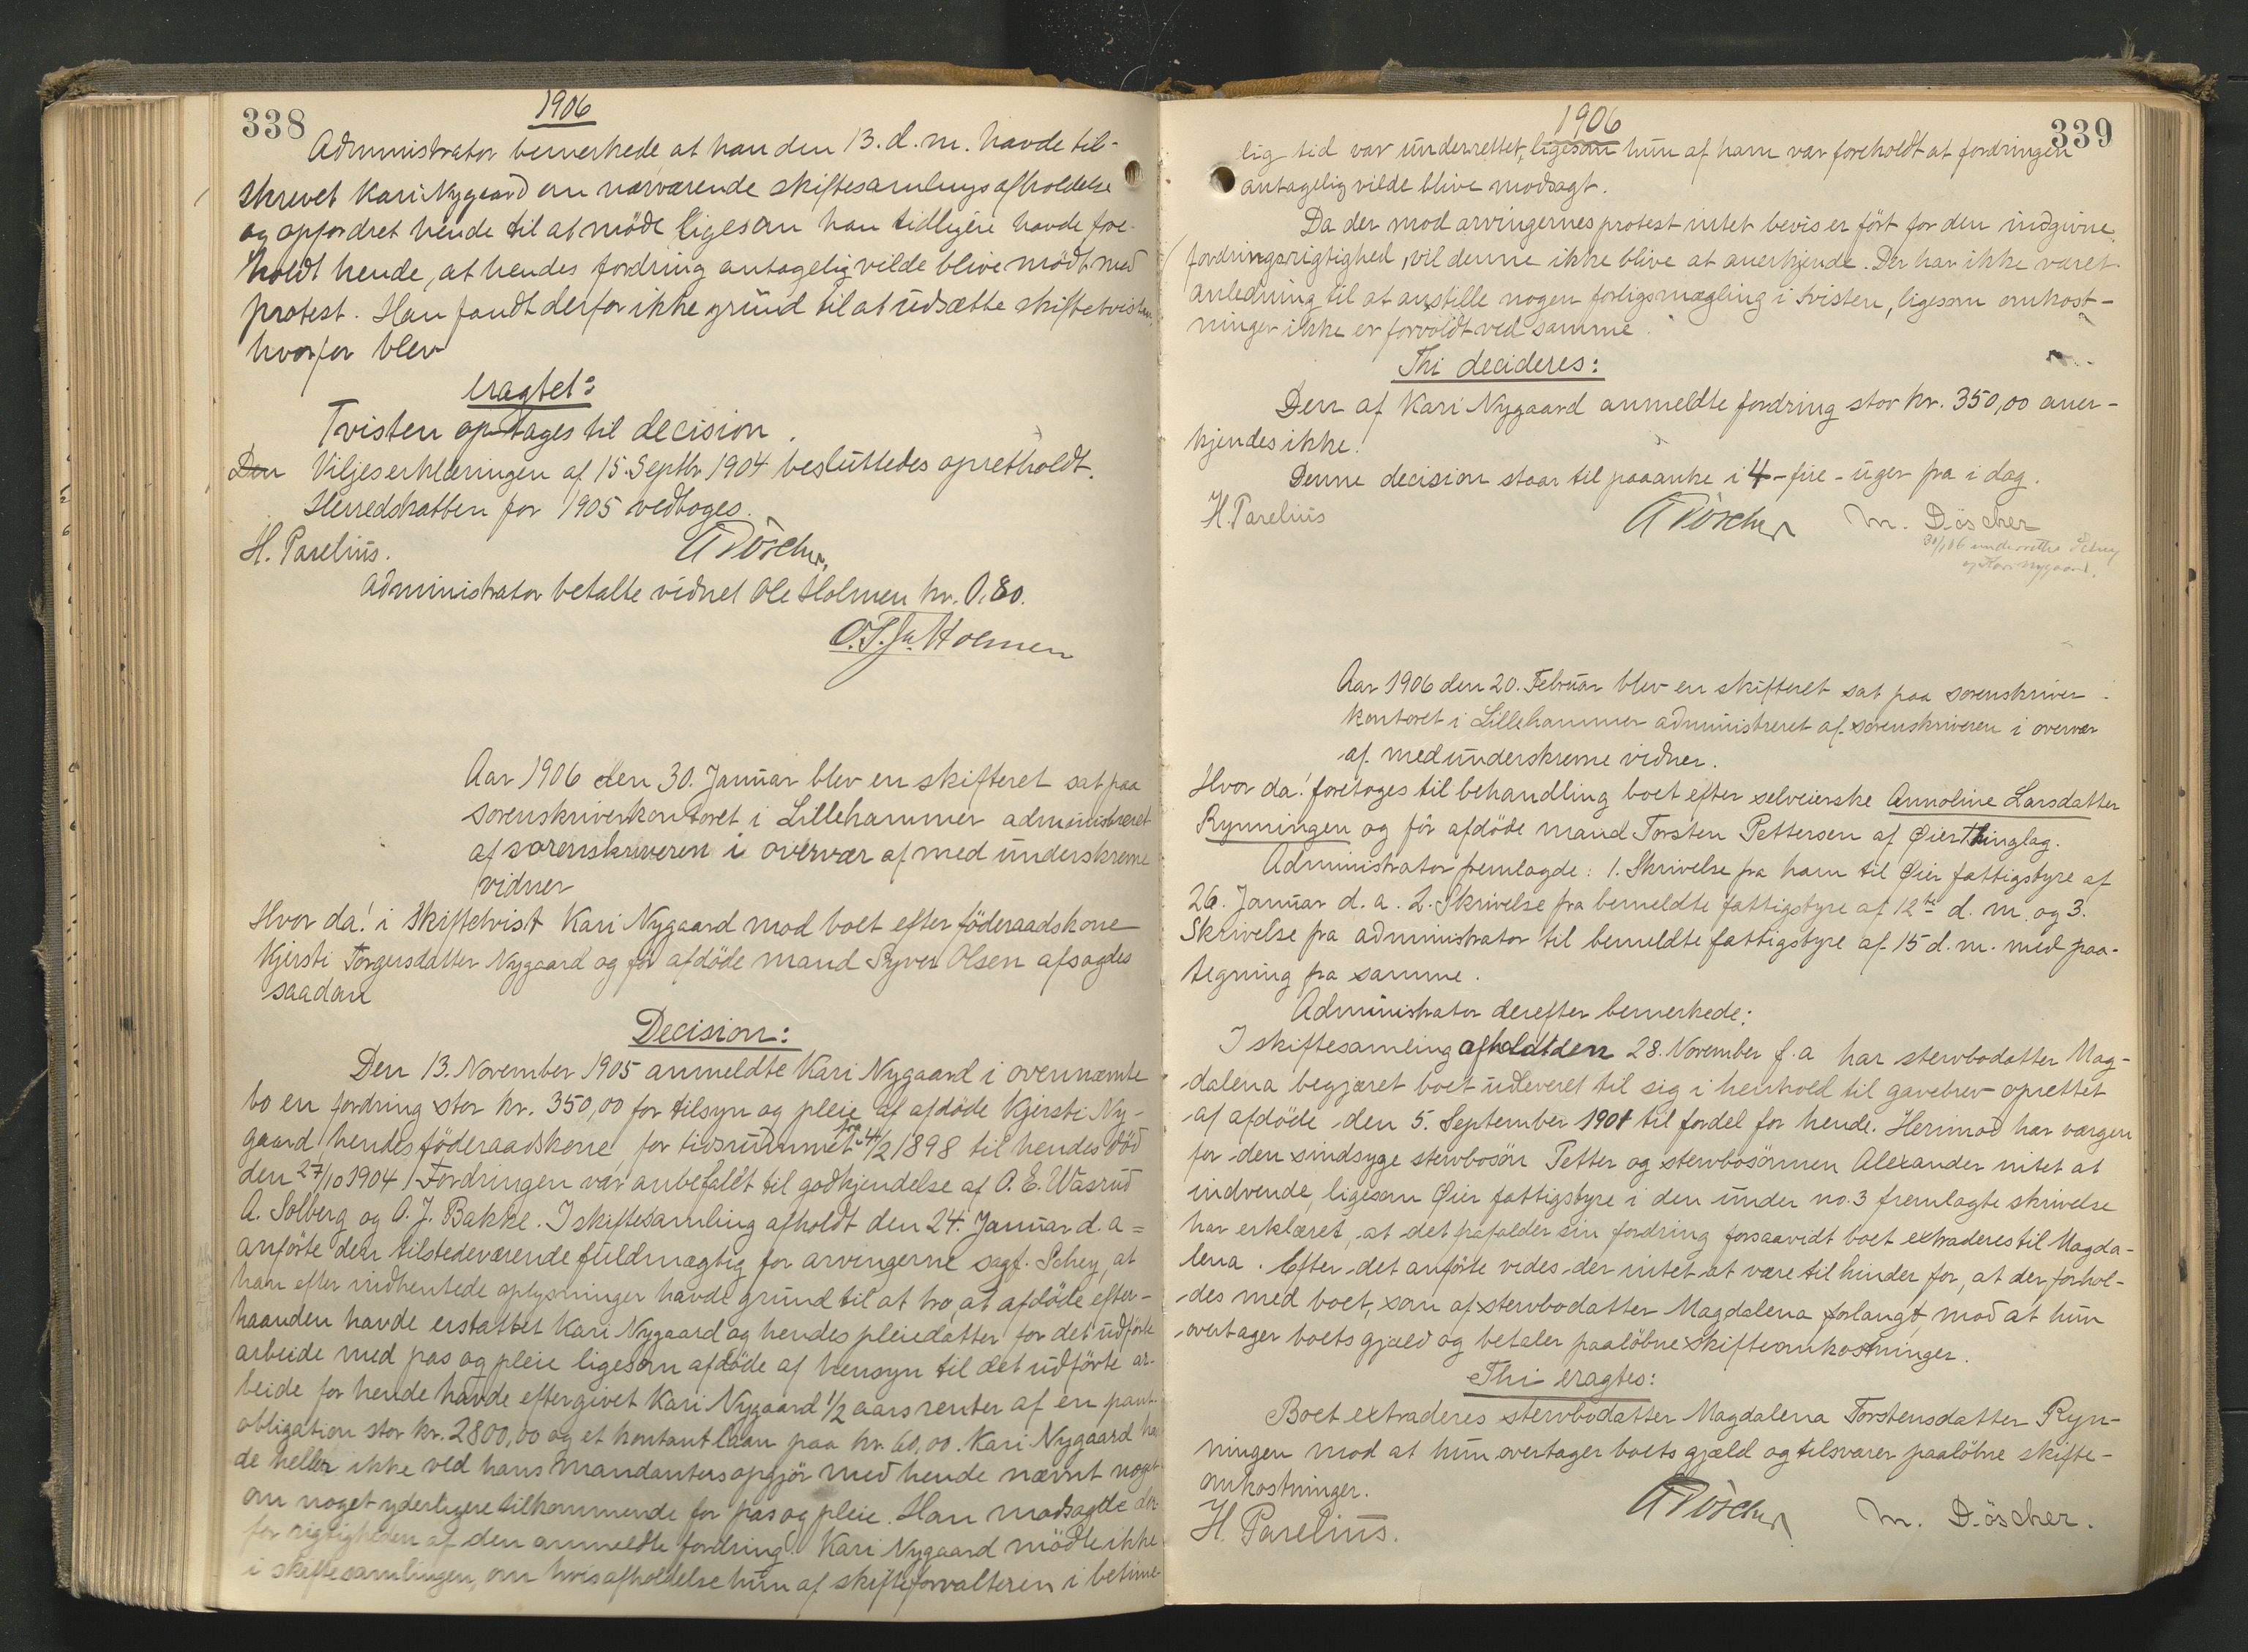 338
1906
Administrator bemerkede at han den 13. d. m. havde til-
skrevet Kari Nygaard om nærværende skiftesamlings afholdelse
og opfordret hende til at møde ligesom han tidligere havde fore-
holdt hende, at hendes fordring antagelig vilde blive mødt med
protest. Han fandt derfor ikke grund til at udsætte skiftetvisten,
hvorfor blev
eragtet:
Tvisten optages til decision.
Den Viljeserklæringen af 15. Septbr 1904 besluttedes opretholdt.
Herredskatten for 1905 vedtoges.
H. Parelius.
Administrator betalte vidnet Ole Holmen kr. 0,80.
Holmen
Aar 1906 den 30. Januar blev en skifteret sat paa
sorenskriverkontoret i Lillehammer administreret
af sorenskriveren i overvær af med underskrevne
vidner
Hvor da! i Skiftetvist Kari Nygaard mod boet efter föderaadskone
Kjersti Torgersdatter Nygaard og før afdöde mand Syver Olsen afsagdes
saadan
Decision:
Den 13. November 1905 anmeldte Kari Nygaard i ovennævnte
bo en fordring stor kr. 350,00 for tilsyn og pleie af afdöde Kjersti Ny-
gaard, hendes föderaadskone, for tidsrummet fra 4/2 1898 til hendes död
den 27/10 1904. Fordringen var anbefalet til godkjendelse af O. E. Wasrud
A. Solberg og O. J. Bakke. I skiftesamling afholdt den 24. Januar d. a =
anførte den tilstedeværende fuldmægtig for arvingerne sagf. Schey, at
han efter indhentede oplysninger havde grund til at tro, at afdöde efter-
haanden havde erstattet Kari Nygaard og hendes pleiedatter for det udförte
arbeide med pas og pleie ligesom afdöde af hensyn til det udförte ar-
beide for hende havde eftergivet Kari Nygaard 1/2 aars renter af en pant-
obligation stor kr. 2800,00 og et kontant laan paa kr. 60,00. Kari Nygaard hav-
de heller ikke ved hans mandanters opgjör med hende nævnt noget
om noget yderligere tilkommende for pas og pleie. Han modsagde der-
for rigtigheden af den anmeldte fordring. Kari Nygaard mödte ikke
i skiftesamlingen, om hvis afholdelse hun af skifteforvalteren i betime-
339
1906
lig tid var underrettet, ligesom hun af ham var foreholdt at fordringen
antagelig vilde blive modsagt.
Da der mod arvingernes protest intet bevis er fört for den indgivne
fordrings rigtighed, vil denne ikke blive at anerkjende. Der har ikke været
anledning til at anstille nogen forligsmægling i tvisten, ligesom omkost-
ninger ikke er forvoldt ved samme.
Thi decideres:
Den af Kari Nygaard anmeldte fordring stor kr. 350,00 aner-
kjendes ikke.
Denne decision staar til paaanke i 4 - fire - uger fra i dag.
H. Parelius M. Döscher
underrettes Schey
og Kari Nygaard.
Aar 1906 den 20. Februar blev en skifteret sat paa sorenskriver-
kontoret i Lillehammer administreret af sorenskriveren i overvær
af medunderskrevne vidner.
Hvor da! foretoges til behandling boet efter selveierske Annoline Larsdatter
Rynningen og för afdöde mand Torsten Pettersen af Øier Thinglag.
Administrator fremlagde: 1. Skrivelse fra ham til Øier fattigstyre af
26. Januar d. a. 2. Skrivelse fra bemeldte fattigstyre af 12te d. m. og 3.
Skrivelse fra administrator til bemeldte fattigstyre af 15 d. m. med paa-
tegning fra samme.
Administrator derefter bemerkede:
I skiftesamling afholdt den 28. November f. a har stervbodatter Mag-
dalena begjæret boet udleveret til sig i henhold til gavebrev oprettet
af afdöde den 5. September 1901 til fordel for hende. Herimod har værgen
for den sindsyge stervbosön Petter og stervbosönnen Alexander intet at
indvende, ligesom Øier fattigstyre i den under no. 3 fremlagte skrivelse
har erklæret, at det frafalder sin fordring forsaavidt boet extraderes til Magda-
lena. Efter det anförte vides der intet at være til hinder for, at der forhol-
des med boet, som af stervbodatter Magdalena forlangt mod at hun
overtager boets gjæld og betaler paalöbne skifteomkostninger.
Thi eragtes:
Boet extraderes stervbodatter Magdalena Torstensdatter Ryn-
ningen mod at hun overtager boets gjæld og tilsvarer paalöbne skifte-
omkostninger.
H. Parelius. M. Döscher.